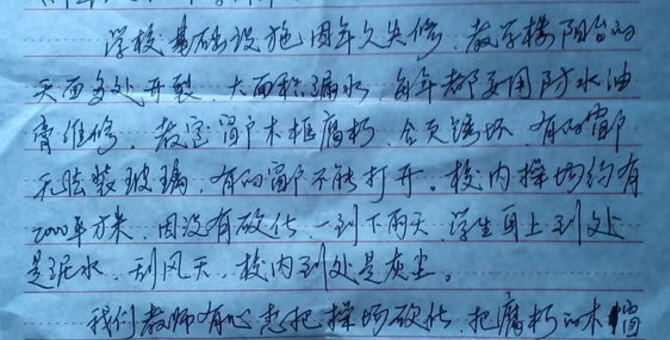 学校基础设施因年久失修、教学楼阳台的
天面多处开裂、大面积漏水、每年都要用防水油
膏维修、教室窗户木框腐朽、合页锈坏、有的窗户
无法装玻璃、有的窗户不能打开。校内操场约有
2000平方米、因没有硬化、一到下雨天、学生身上到处
是泥水、刮风天、校内到处是灰尘。
我们教师有心想把操场硬化、把腐朽的木窗